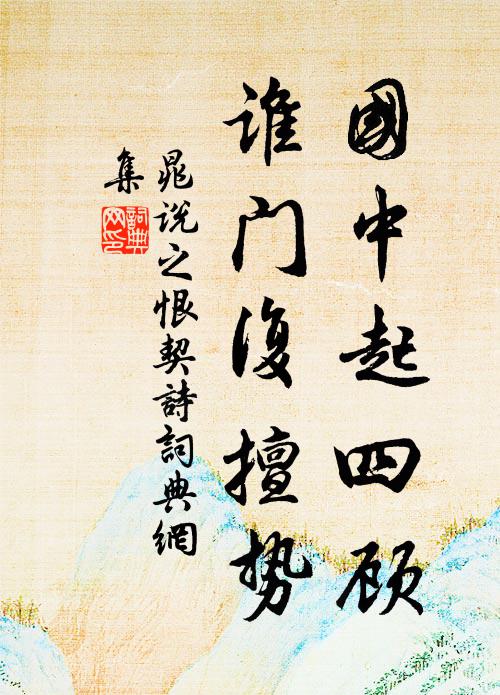 國中起四顾
谁门復擅势
晁说之恨契詩詞典網
集
詞典
网印